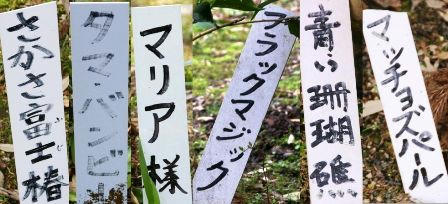 さかさ富士椿
タマ・バンビーノ
マリア様
ブラックマジック
青い珊瑚礁
マッチョズパール